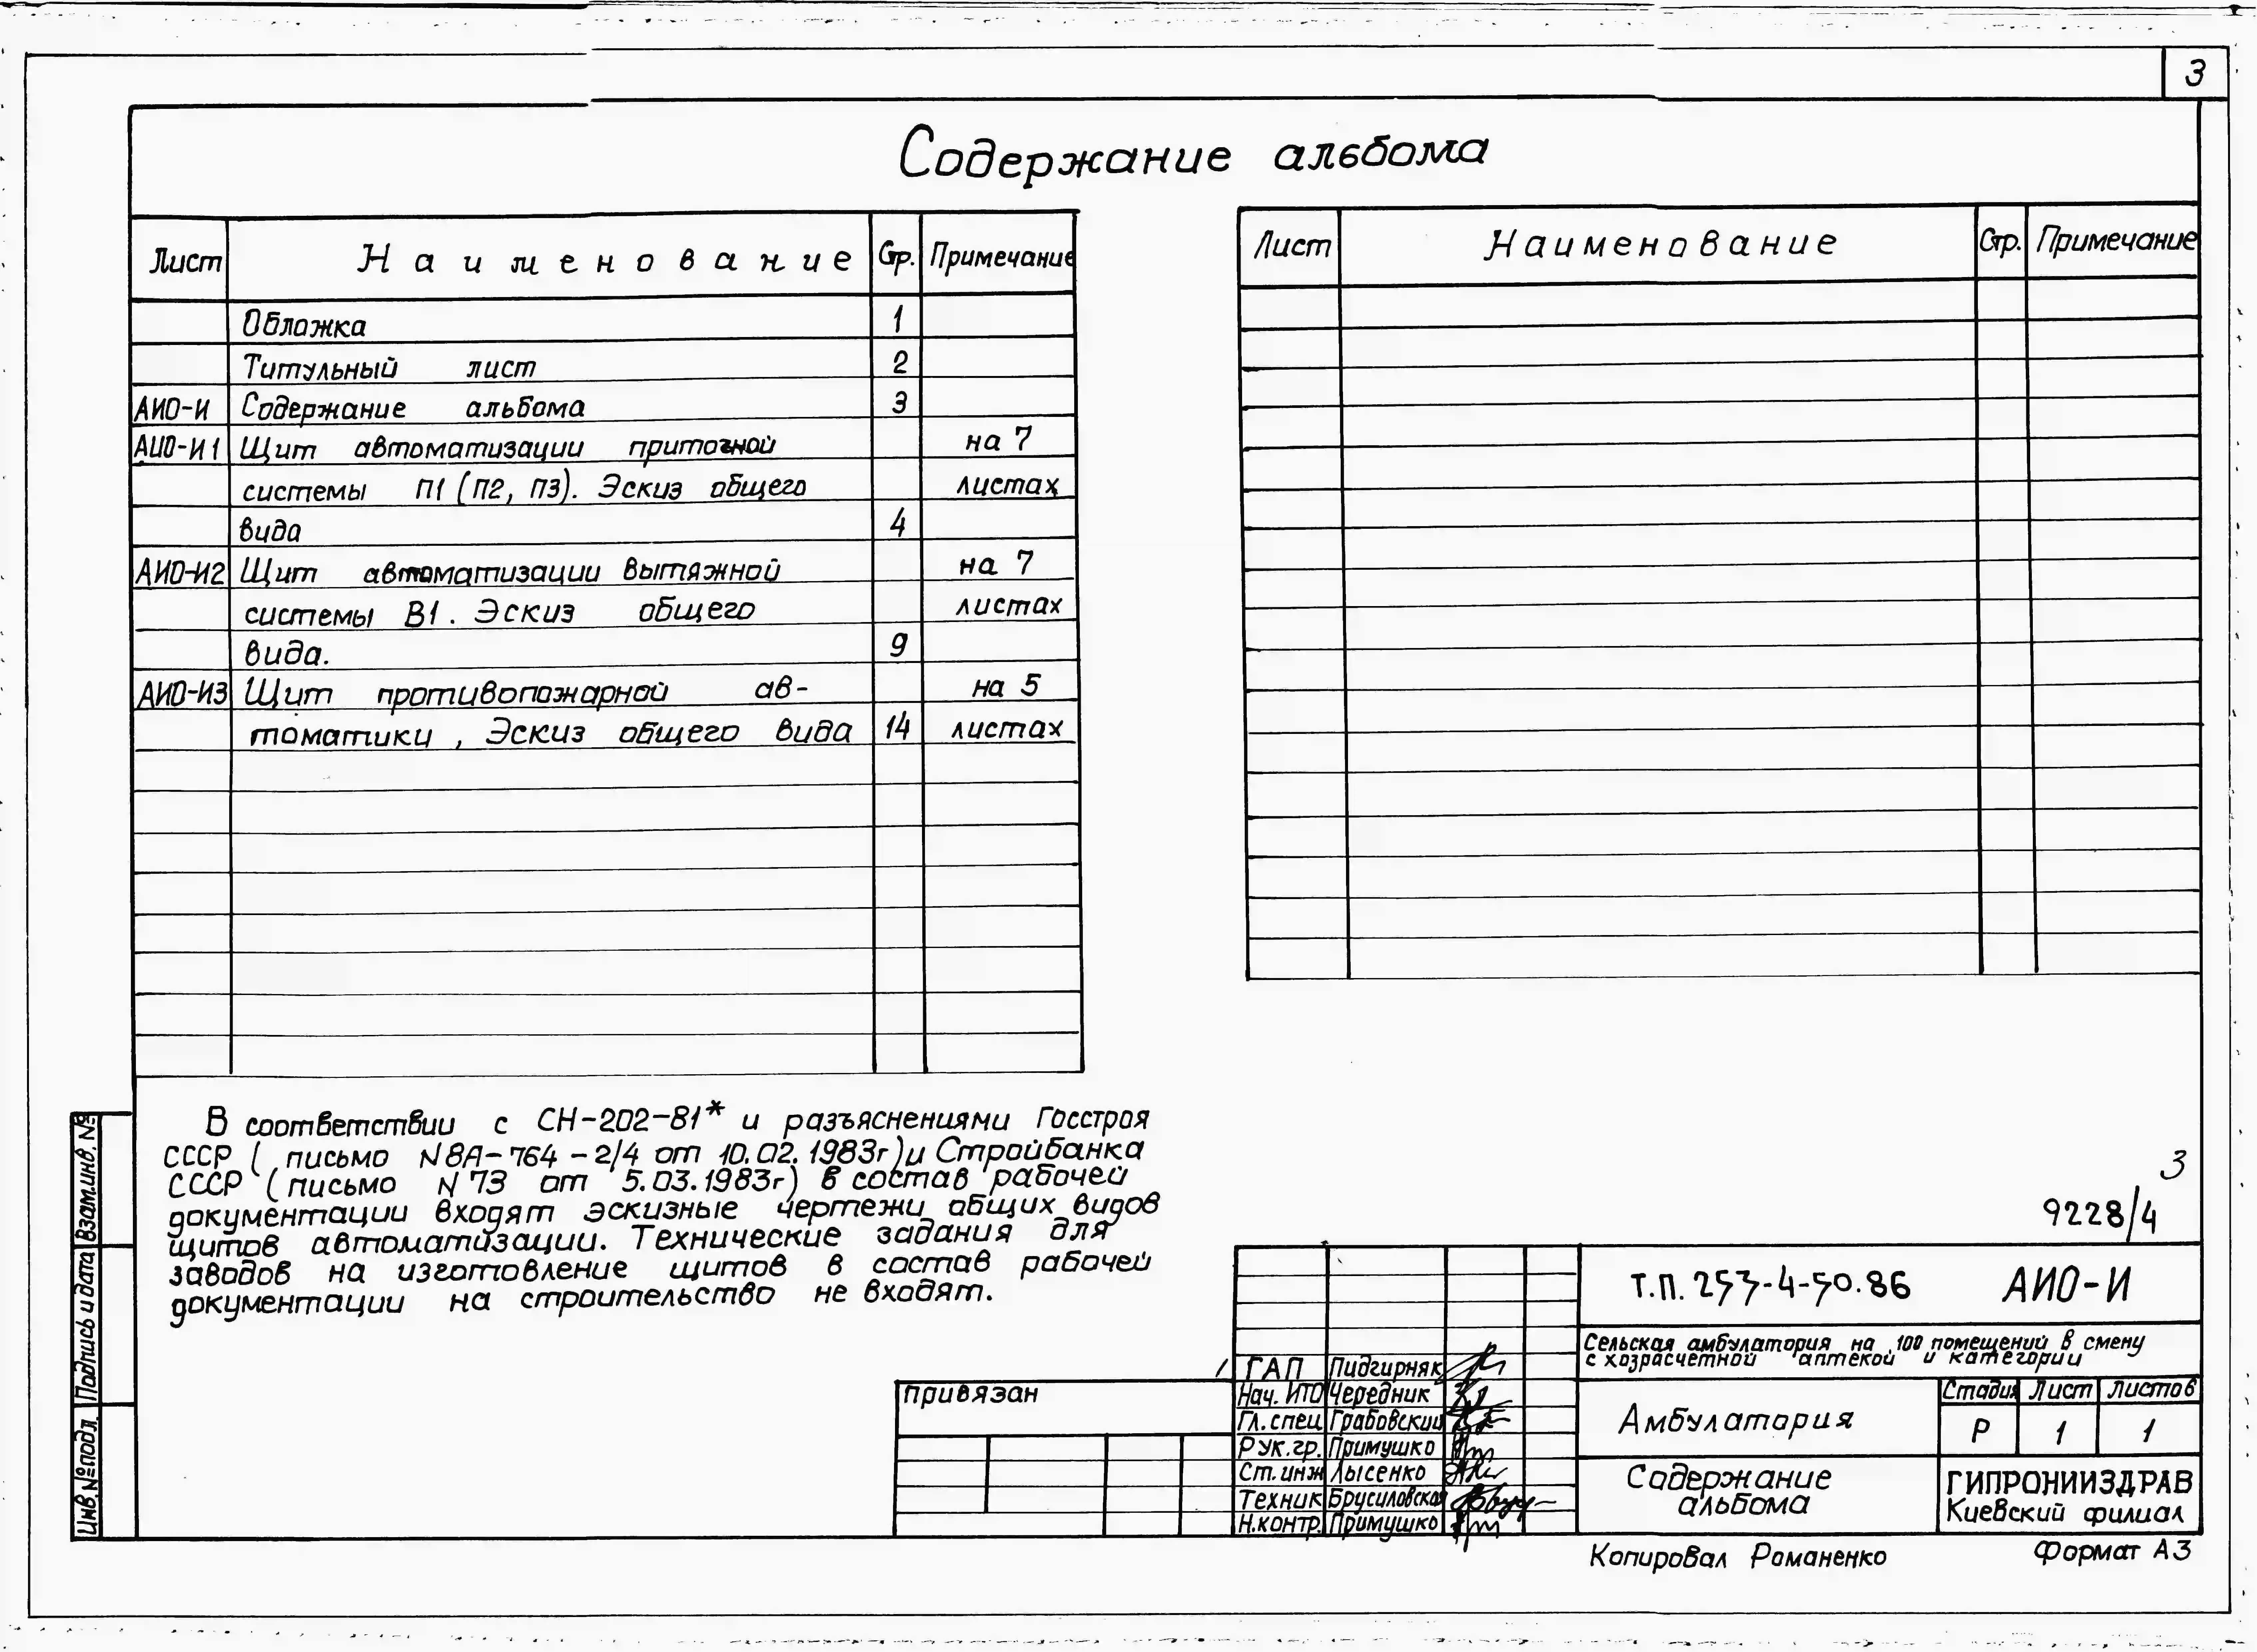 3
Содержание альбома
Лист Наименование Стр. Примечание
Обложка 1
Титульный лист 2
АИО-И Содержание альбома 3
АИО-И1 Щит автоматизации приточной на 7
системы П1 (П2, П3). Эскиз общего листах
вида 4
АИО-И2 Щит автоматизации вытяжной на 7
системы В1. Эскиз общего листах
вида. 9
АИО-И3 Щит противопожарной ав- на 5
томатики, Эскиз общего вида 14 листах
Лист Наименование Стр. Примечание
В соответствии с СН-202-81* и разъяснениями Госстроя
СССР ( письмо N8А-764-2/4 от 10.02.1983г) и Стройбанка
СССР (письмо N73 от 5.03.1983г) в состав рабочей
документации входят эскизные чертежи общих видов
щитов автоматизации. Технические задания для
заводов на изготовление щитов в состав рабочей
документации на строительство не входят.
3
9228/4
Взам.инв.№
Подпись и дата
Инв.№подл.
привязан
ГАП Пидгирняк
Нач. ИТО Чередник
Гл. спец. Грабовский
Рук.гр. Примушко
Ст.инж Лысенко
Техник Брусиловская
Н.контр. Примушко
Т.П. 253-4-50.86 АИО-И
Сельская амбулатория на 100 помещений в смену
с хозрасчетной аптекой и категории
Амбулатория
Стадия Лист Листов
Р 1 1
Содержание
альбома
ГИПРОНИИЗДРАВ
Киевский филиал
Копировал Романенко
Формат А3